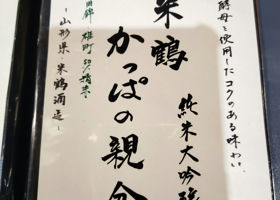 酵母を使用したコクのある味わい。
純米大吟醸
米鶴
かっぱの親分
山田錦 雄町
~山形県・米鶴酒造~